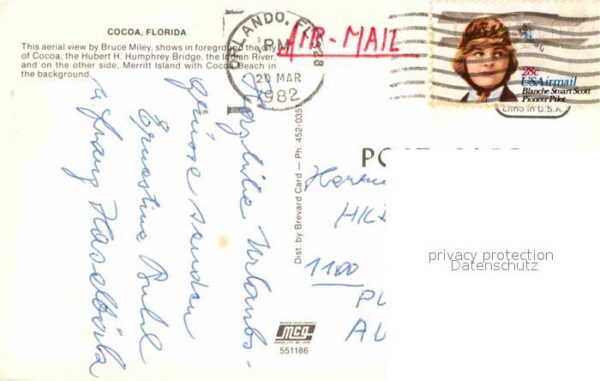 COCOA, FLORIDA
This aerial view by Bruce Miley, shows in foreground the city
of Cocoa, the Hubert H. Humphrey Bridge, the Indian River,
and on the other side, Merritt Island with Cocoa Beach in
the background.
ORLANDO, FL 328
PM
29 MAR
1982
AIR-MAIL
28c
USAirmail
Blanche Stuart Scott
Pioneer Pilot
Herzliche Urlaubs-
grüsse senden
Ernestine
u Franz
Dist. by Brevard Card — Ph. 452-035
POST CARD
1100
mcg
551186
privacy protection
Datenschutz